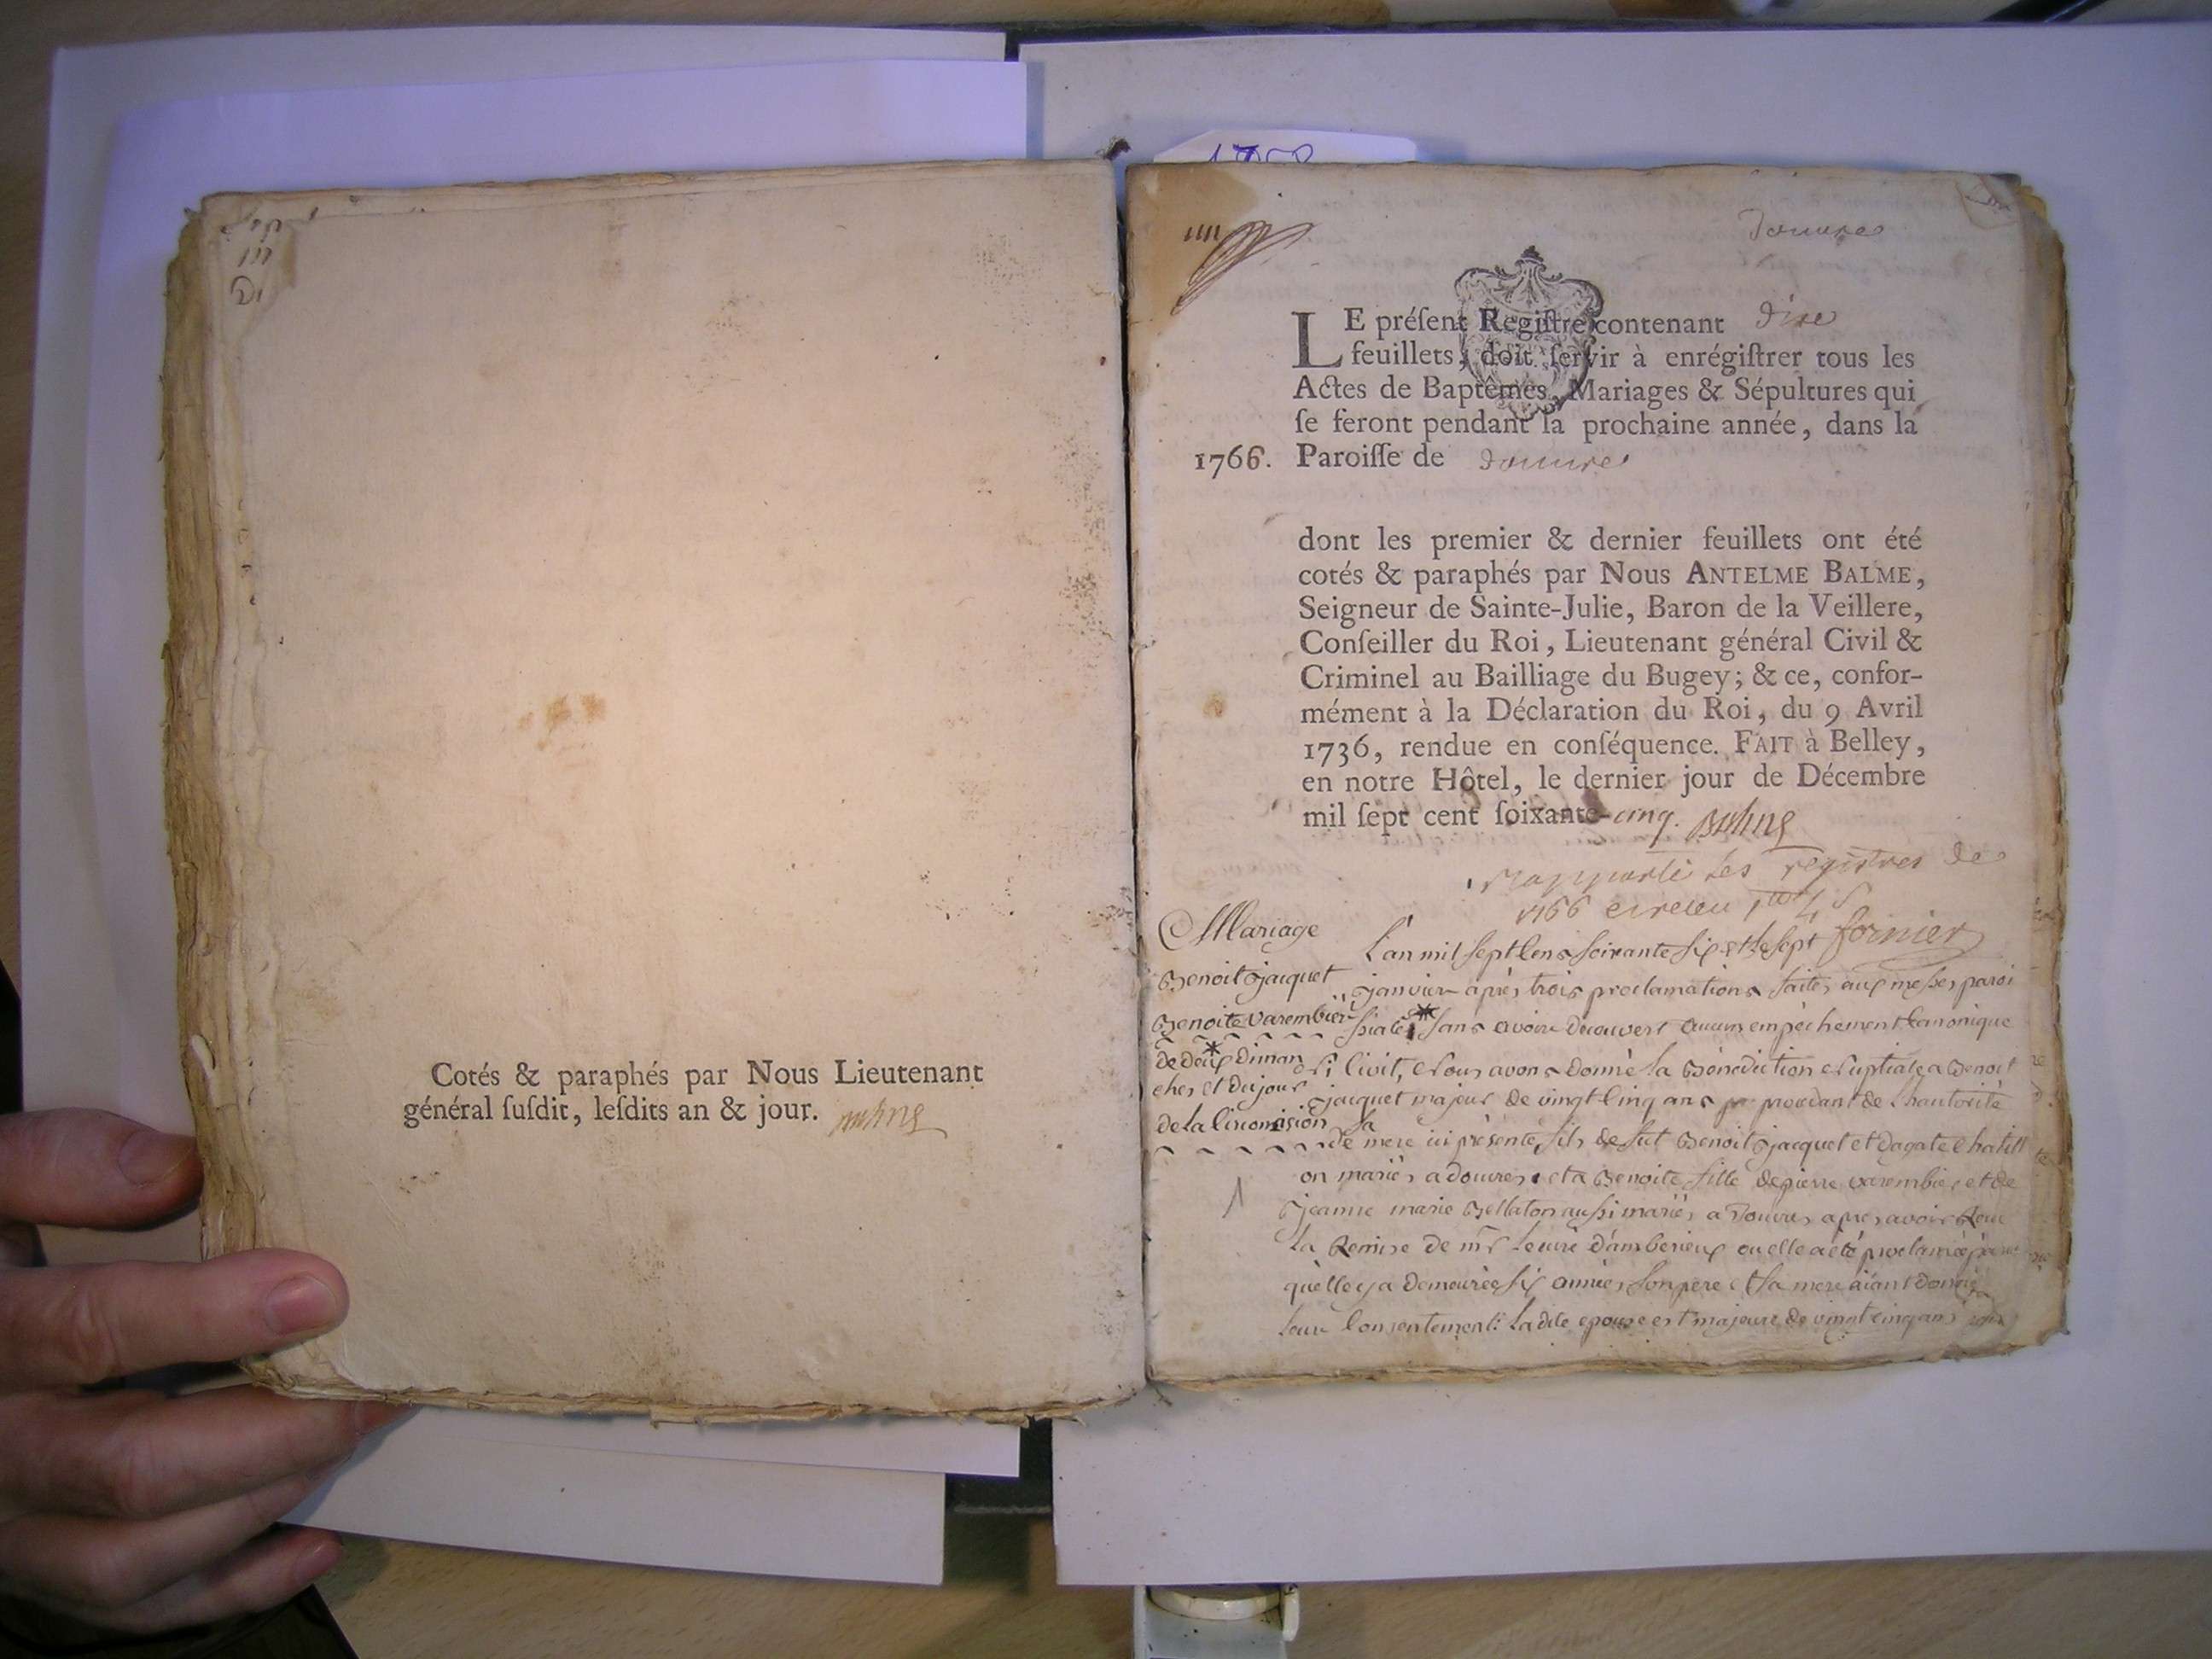 Cotés & paraphés par Nous Lieutenant
général ſuſdit, leſdits an & jour.
1768
IIII
Douvres
LE préſent Regiſtre contenant dixe
feuillets, doit ſervir à enrégiſtrer tous les
Actes de Baptêmes, Mariages & Sépultures qui
ſe feront pendant la prochaine année, dans la
1766. Paroiſſe de douvres
dont les premier & dernier feuillets ont été
cotés & paraphés par Nous ANTELME BALME,
Seigneur de Sainte-Julie, Baron de la Veillere,
Conſeiller du Roi, Lieutenant général Civil &
Criminel au Bailliage du Bugey; & ce, confor-
mément à la Déclaration du Roi, du 9 Avril
1736, rendue en conſéquence. FAIT à Belley,
en notre Hôtel, le dernier jour de Décembre
mil ſept cent ſoixante-cinq.
rapporté les registres de
1766
fornier
Mariage
Benoit jacquet
Benoite varembier
* de deux diman
ches et du jour
de la Circoncision
L'an mil sept Cens soixante six et le sept
janvier après trois proclamations faites aux messes paroi
ssiales * sans avoir decouvert aucun empêchement Canonique
ni Civil, Nous avons donné la Bénédiction Nuptiale a Benoit
jacquet majeur de vingt Cinq ans procedant de l'hautorité
de sa mere ici présente, fils de fut Benoit jacquet et d'agate Chatill
on mariés a douvres et a Benoite fille de pierre varembier et de
jeanne marie Bellaton aussi mariés a Douvres apres avoir Reçu
la Remise de mr le curé d'amberieux ou elle a été proclamée
qu'elle y a demeurée six années son pere et sa mere aiant donné
leur Consentement: ladite epouse est majeure de vingt cinq ans